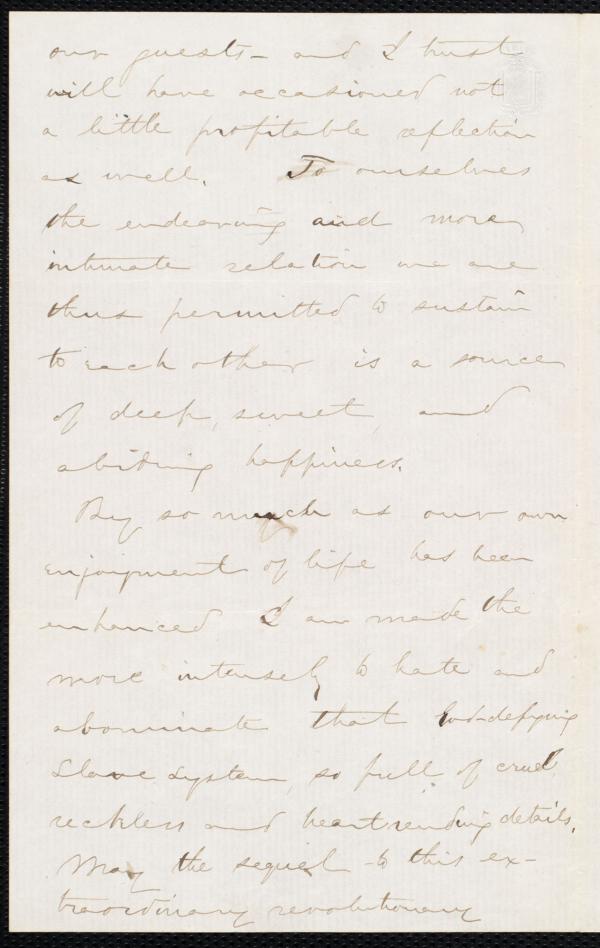 our guests – and I trust
will have occasioned not
a little profitable reflection
as well. To ourselves
the endearing and more
intimate relation we are
thus permitted to sustain
to each other is a source
of deep, sweet, and
abiding happiness.
By so much as our own
enjoyment of life has been
enhanced I am made the
more intensely to hate and
abominate that God-defying
Slave System, so full of cruel,
reckless and heart rending details.
May the sequel to this ex-
traordinary revolutionary